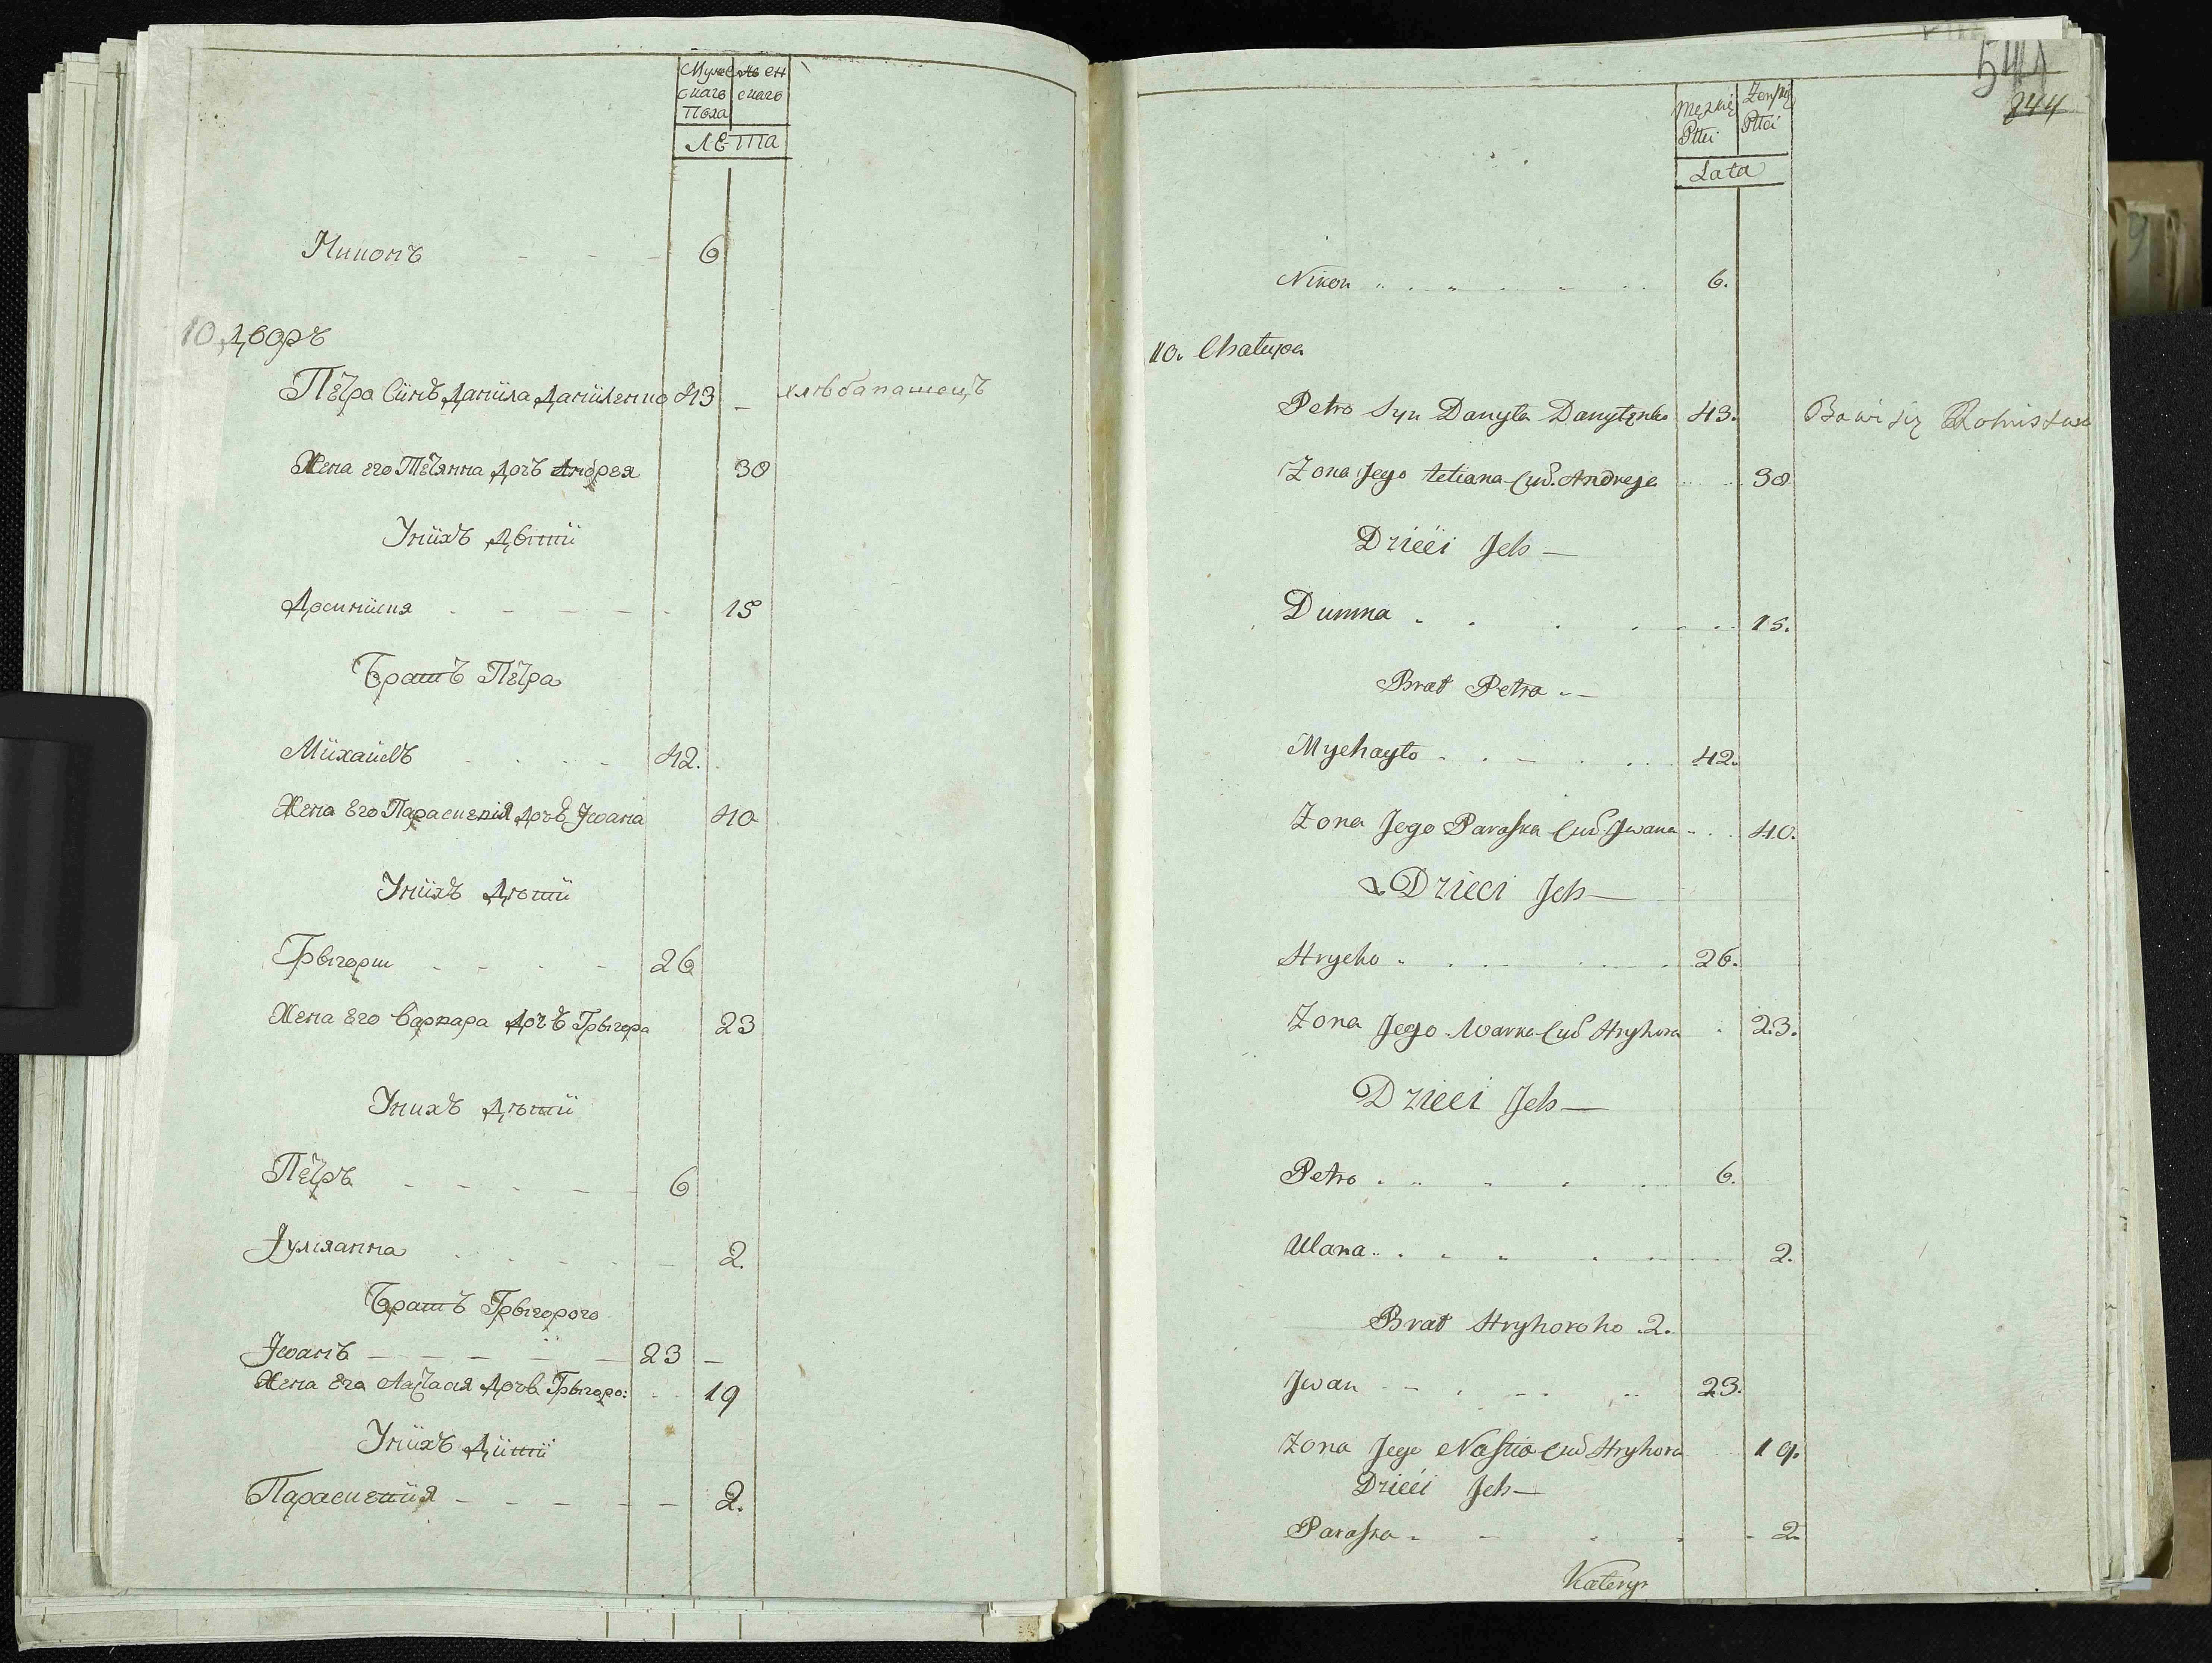 Мужескаго Пола
Женскаго
ЛЕТА
Никонъ 6
10 Дворъ
Пётра Сiинъ Данiила Данiиленко 43 хлѣбапашецъ
Жена его Тетянна Дочъ Андрея 38
Унiихъ Дѣтiи
Домникия 15
Братъ Петра
Мiихаилъ 42.
Жена Его Параскевия Дочъ Iвана 40
Унiихъ Дѣтiи
Грыгори 26
Жена Его Варвара Дочъ Грыгора 23
Унихъ Дѣтiи
Петръ 6
Iулiянна 2.
Братъ Грыгорого
Iванъ 23
Жена Его Настасия Дочъ Грыгоро: 19
Унiихъ Дiитiи
Параскевiия 2.
544
244
Męzkiey Płci
Zenskiey Płci
Lata
Nikon 6.
10. Chałupa
Petro Syn Danyła Danyłęnko 43. Bawi się Rolnistwe
Zona Jego tetiana Cud. Andreja 38
Dzieci Jch
Dumna 15.
Brat Petra
Mychayło 42.
Zona Jego Paraska Cud Jwana 40.
Dzieci Jch
Hrycko 26.
Zona Jego Warka Cud Hryhora 23.
Dzieci Jch
Petro 6.
Ulana 2.
Brat Hryhoroho 2.
Jwan 23.
Zona Jego Nastia Cud Hryhora 19.
Dzieci Jch
Paraska 2
Kateryn